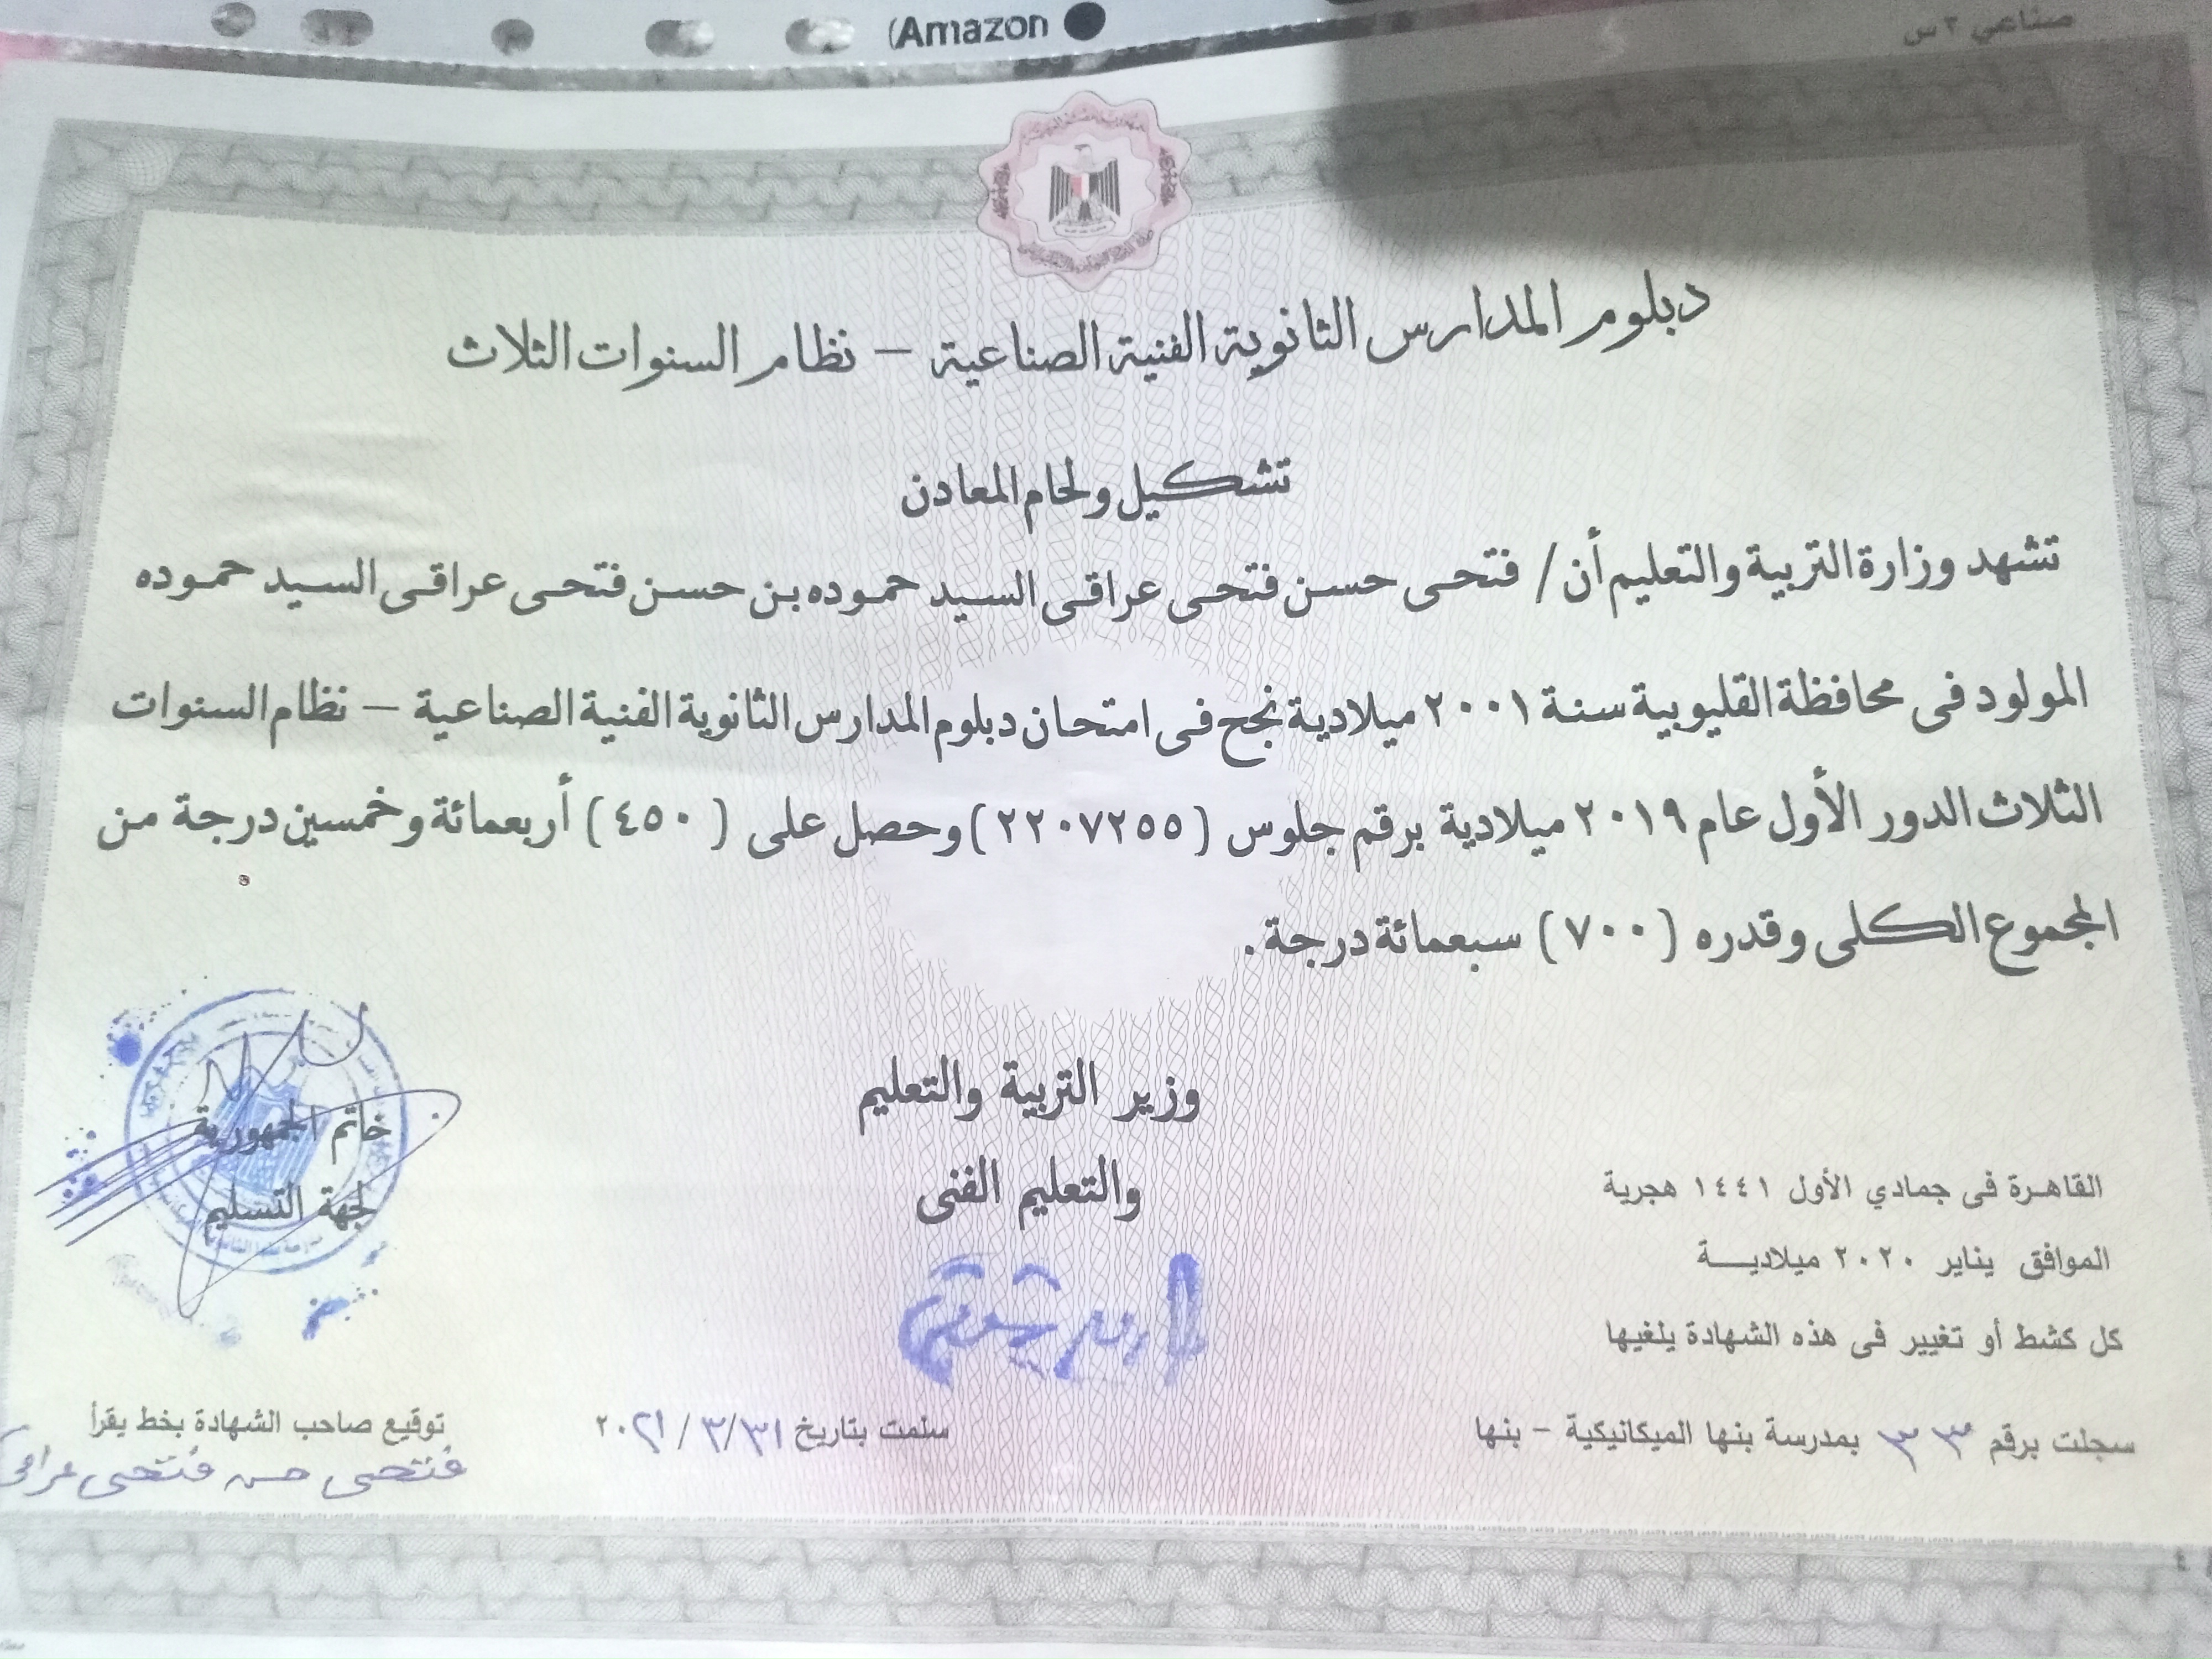 (Amazon
صناعي ٣ س
دبلوم المدارس الثانوية الفنية الصناعية – نظام السنوات الثلاث
تشكيل ولحام المعادن
تشهد وزارة التربية والتعليم أن / فتحى حسن فتحى عراقى السيد حموده بن حسن فتحى عراقى السيد حموده
المولود فى محافظة القليوبية سنة ٢٠٠١ ميلادية نجح فى امتحان دبلوم المدارس الثانوية الفنية الصناعية – نظام السنوات
الثلاث الدور الأول عام ٢٠١٩ ميلادية برقم جلوس (٢٢٠٧٢٥٥) وحصل على (٤٥٠) أربعمائة وخمسين درجة من
المجموع الكلى وقدره (٧٠٠) سبعمائة درجة.
وزير التربية والتعليم
والتعليم الفنى
خاتم الجمهورية
لجهة التسليم
القاهرة فى جمادي الأول ١٤٤١ هجرية
الموافق يناير ٢٠٢٠ ميلاديـــة
كل كشط أو تغيير فى هذه الشهادة يلغيها
سجلت برقم ٣٣ بمدرسة بنها الميكانيكية - بنها
سلمت بتاريخ ٣١/٣/٢٠٢١
توقيع صاحب الشهادة بخط يقرأ
فتحى حسن فتحى عراقى